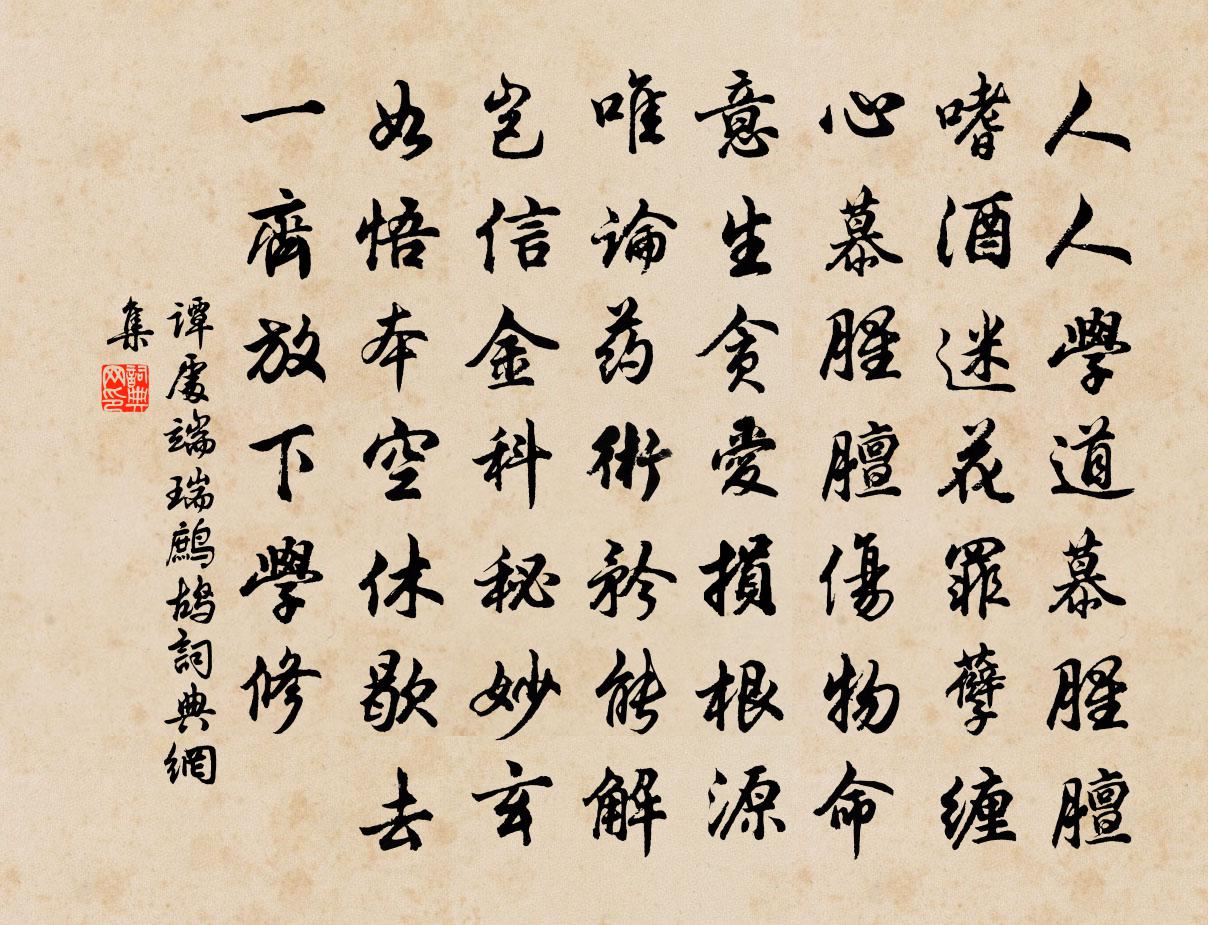 人人學道慕腥膻
嗜酒迷花罪孽缠
心慕腥膻傷物命
意生贪愛損根源
唯論药術矜能解
岂信金科秘妙玄
如悟本空休歇去
一齊放下學修
譚處端瑞鷓鴣詞典網
集
詞典
网印